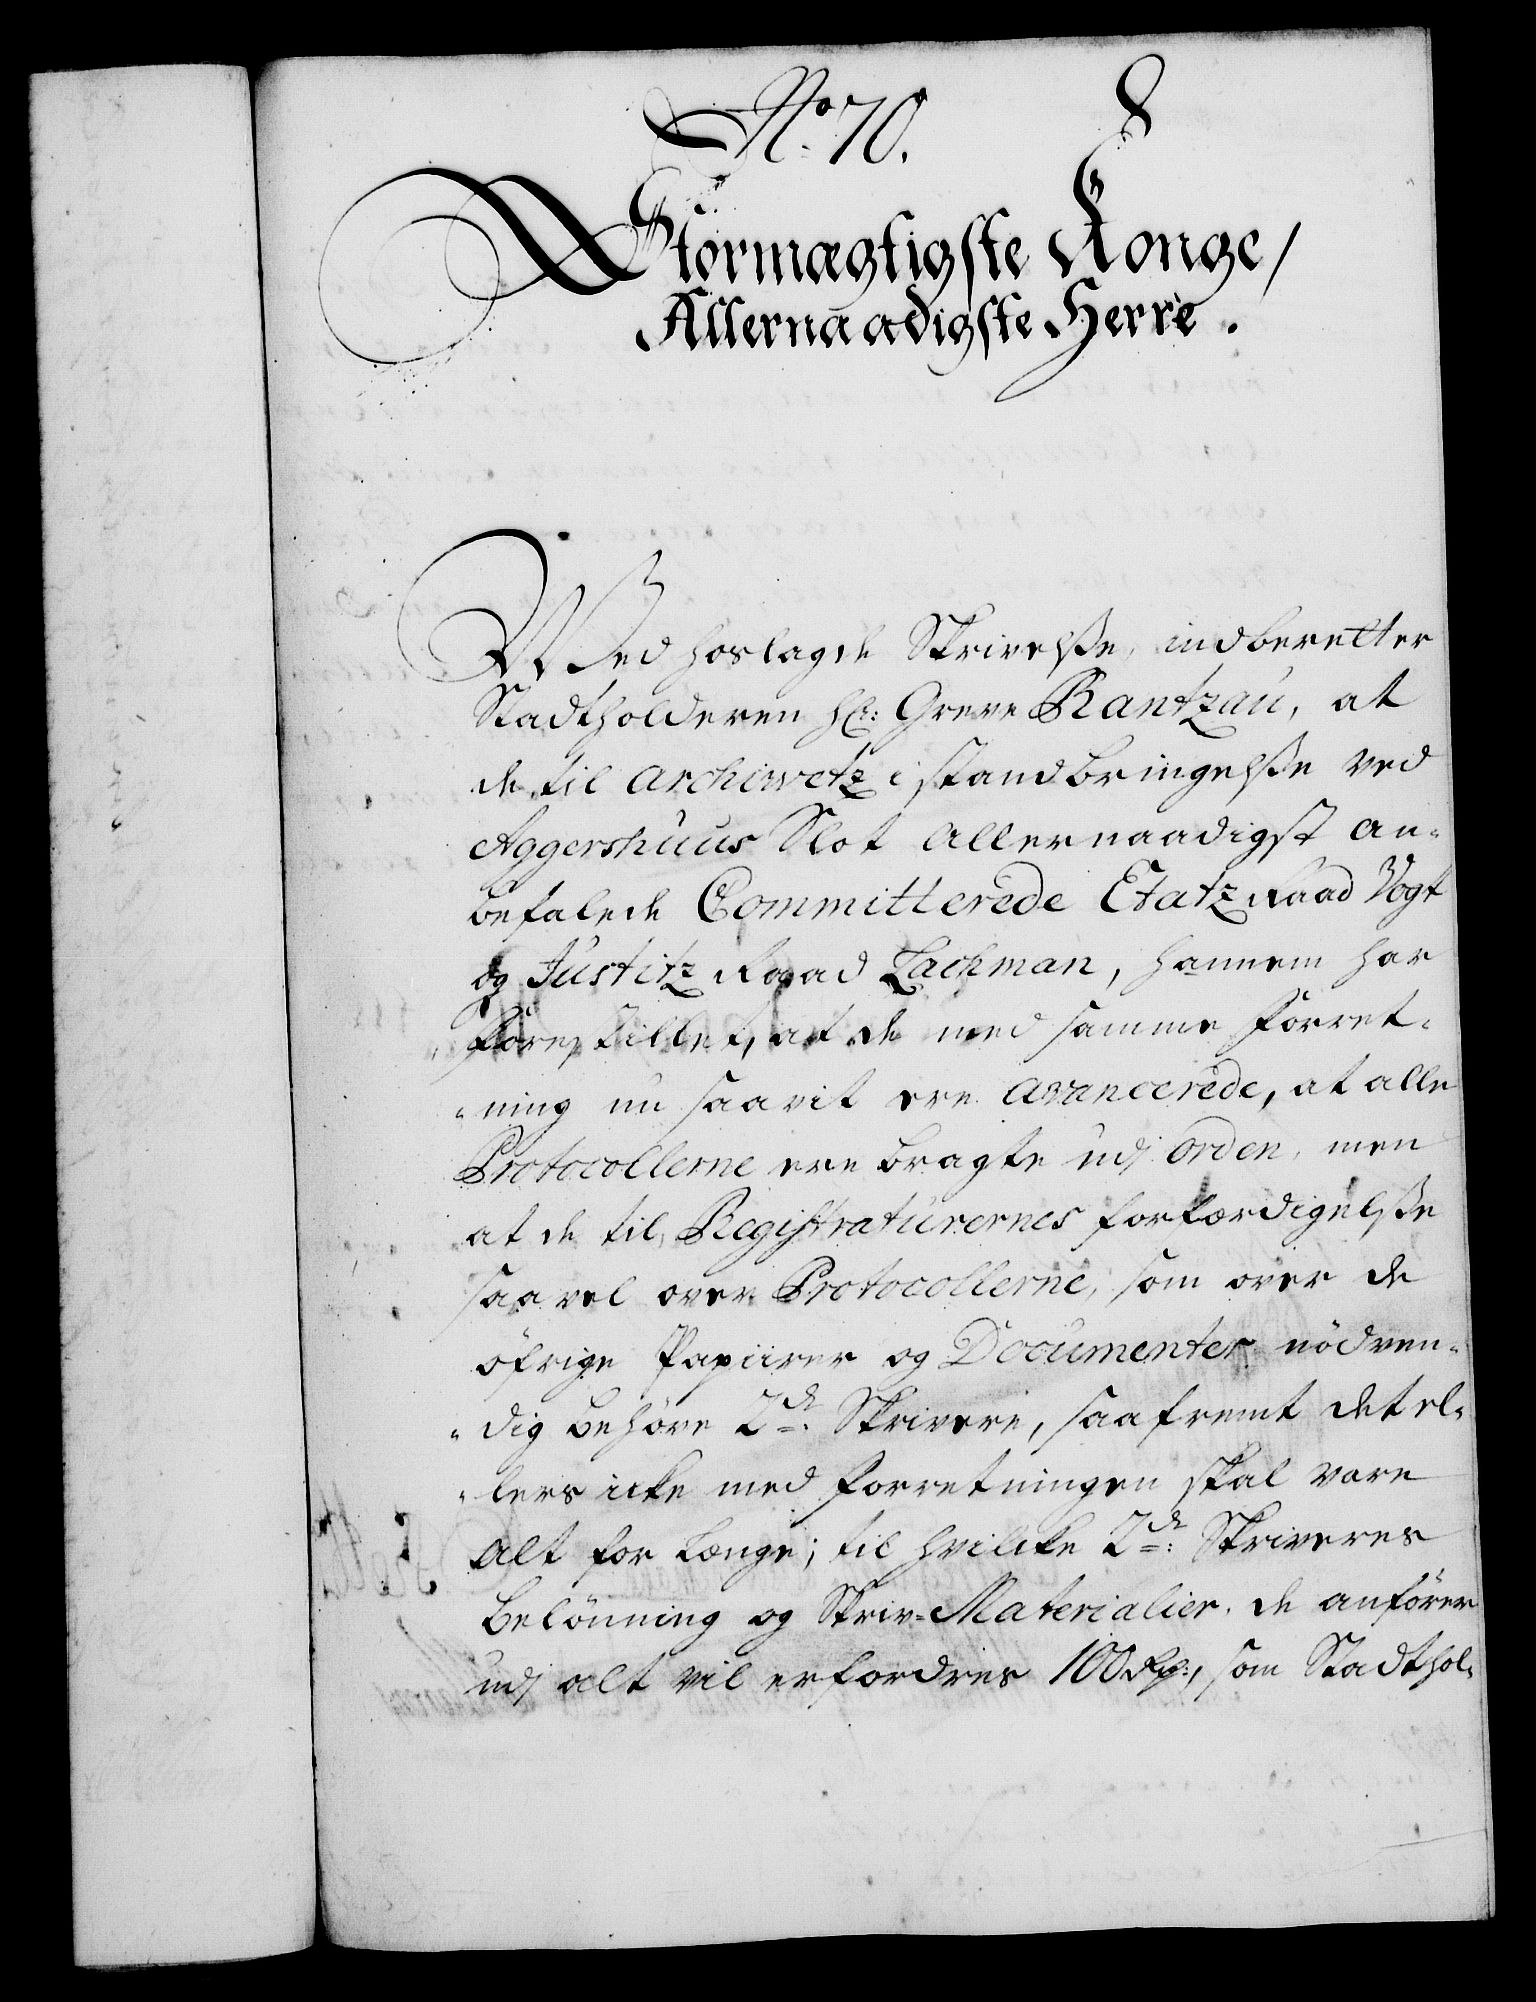 No 70.
Stormægtigste Konge,
Allernaadigste Herre.
Med hoslagde Skrivelsse, indberetter
Stadtholderen hr: Greve Rantzau, at
de til Archivetz i standbringelsse ved
Aggershuus Slot allernaadigst an-
befalede Committerede Etatz Raad Vogt
og Justitz Raad Lachman, hannem har
forestillet, at de med samme Forret-
-ning nu saavit ere avancerede, at alle
Protocollerne ere bragte udj orden, men
at de til Registraturernes forfærdigelsse
saavel over Protocollerne, som over de
öfrige Papiirer og Documenter nödven-
-dig behöve 2de: Skrivere, saafremt det el-
-lers icke med forretningen skal vare
alt for længe; til hvilcke 2de: Skriveres
belönning og Skriv-Materialier, de anförer
udj alt vil erfordres 100 Rdr:, som Stadthol-